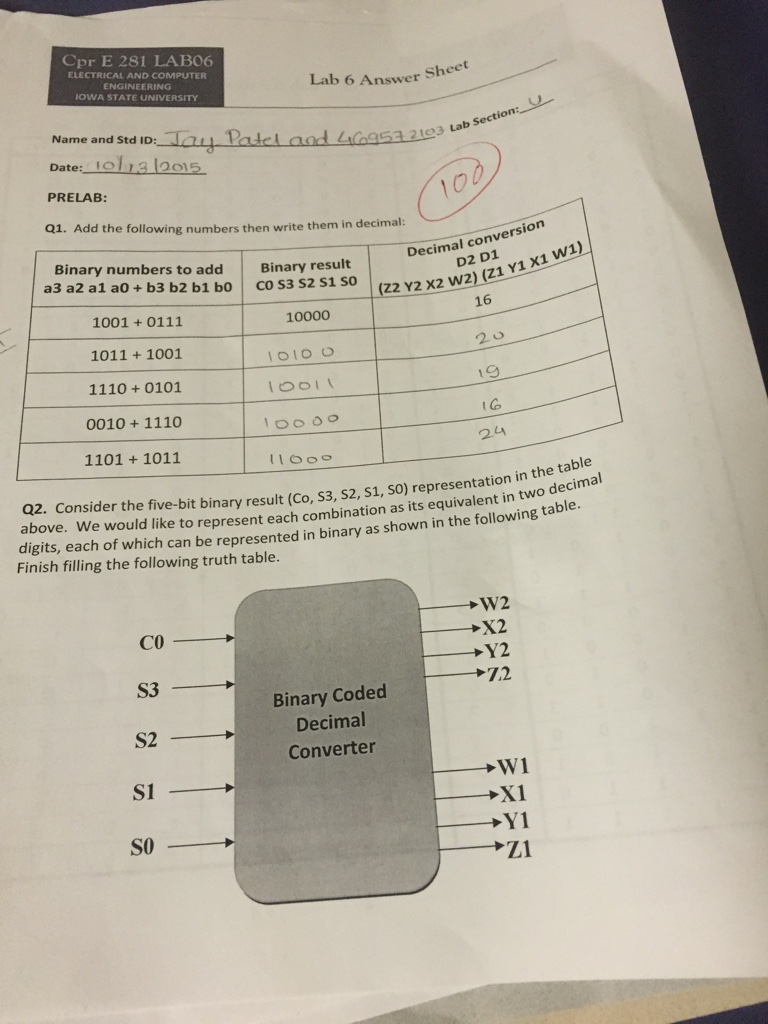 Cpr E 281 LAB06
ELECTRICAL AND COMPUTER
ENGINEERING
IOWA STATE UNIVERSITY
Lab 6 Answer Sheet
Name and Std ID: Jay Patel and 469572103 Lab Section: U
Date: 10/13/2015
PRELAB:
100
Q1. Add the following numbers then write them in decimal:
Binary numbers to add
a3 a2 a1 a0 + b3 b2 b1 b0
Binary result
C0 S3 S2 S1 S0
Decimal conversion
D2 D1
(Z2 Y2 X2 W2) (Z1 Y1 X1 W1)
1001 + 0111 10000 16
1011 + 1001 10100 20
1110 + 0101 10011 19
0010 + 1110 10000 16
1101 + 1011 11000 24
Q2. Consider the five-bit binary result (Co, S3, S2, S1, S0) representation in the table
above. We would like to represent each combination as its equivalent in two decimal
digits, each of which can be represented in binary as shown in the following table.
Finish filling the following truth table.
C0
S3
S2
S1
S0
Binary Coded
Decimal
Converter
W2
X2
Y2
Z2
W1
X1
Y1
Z1